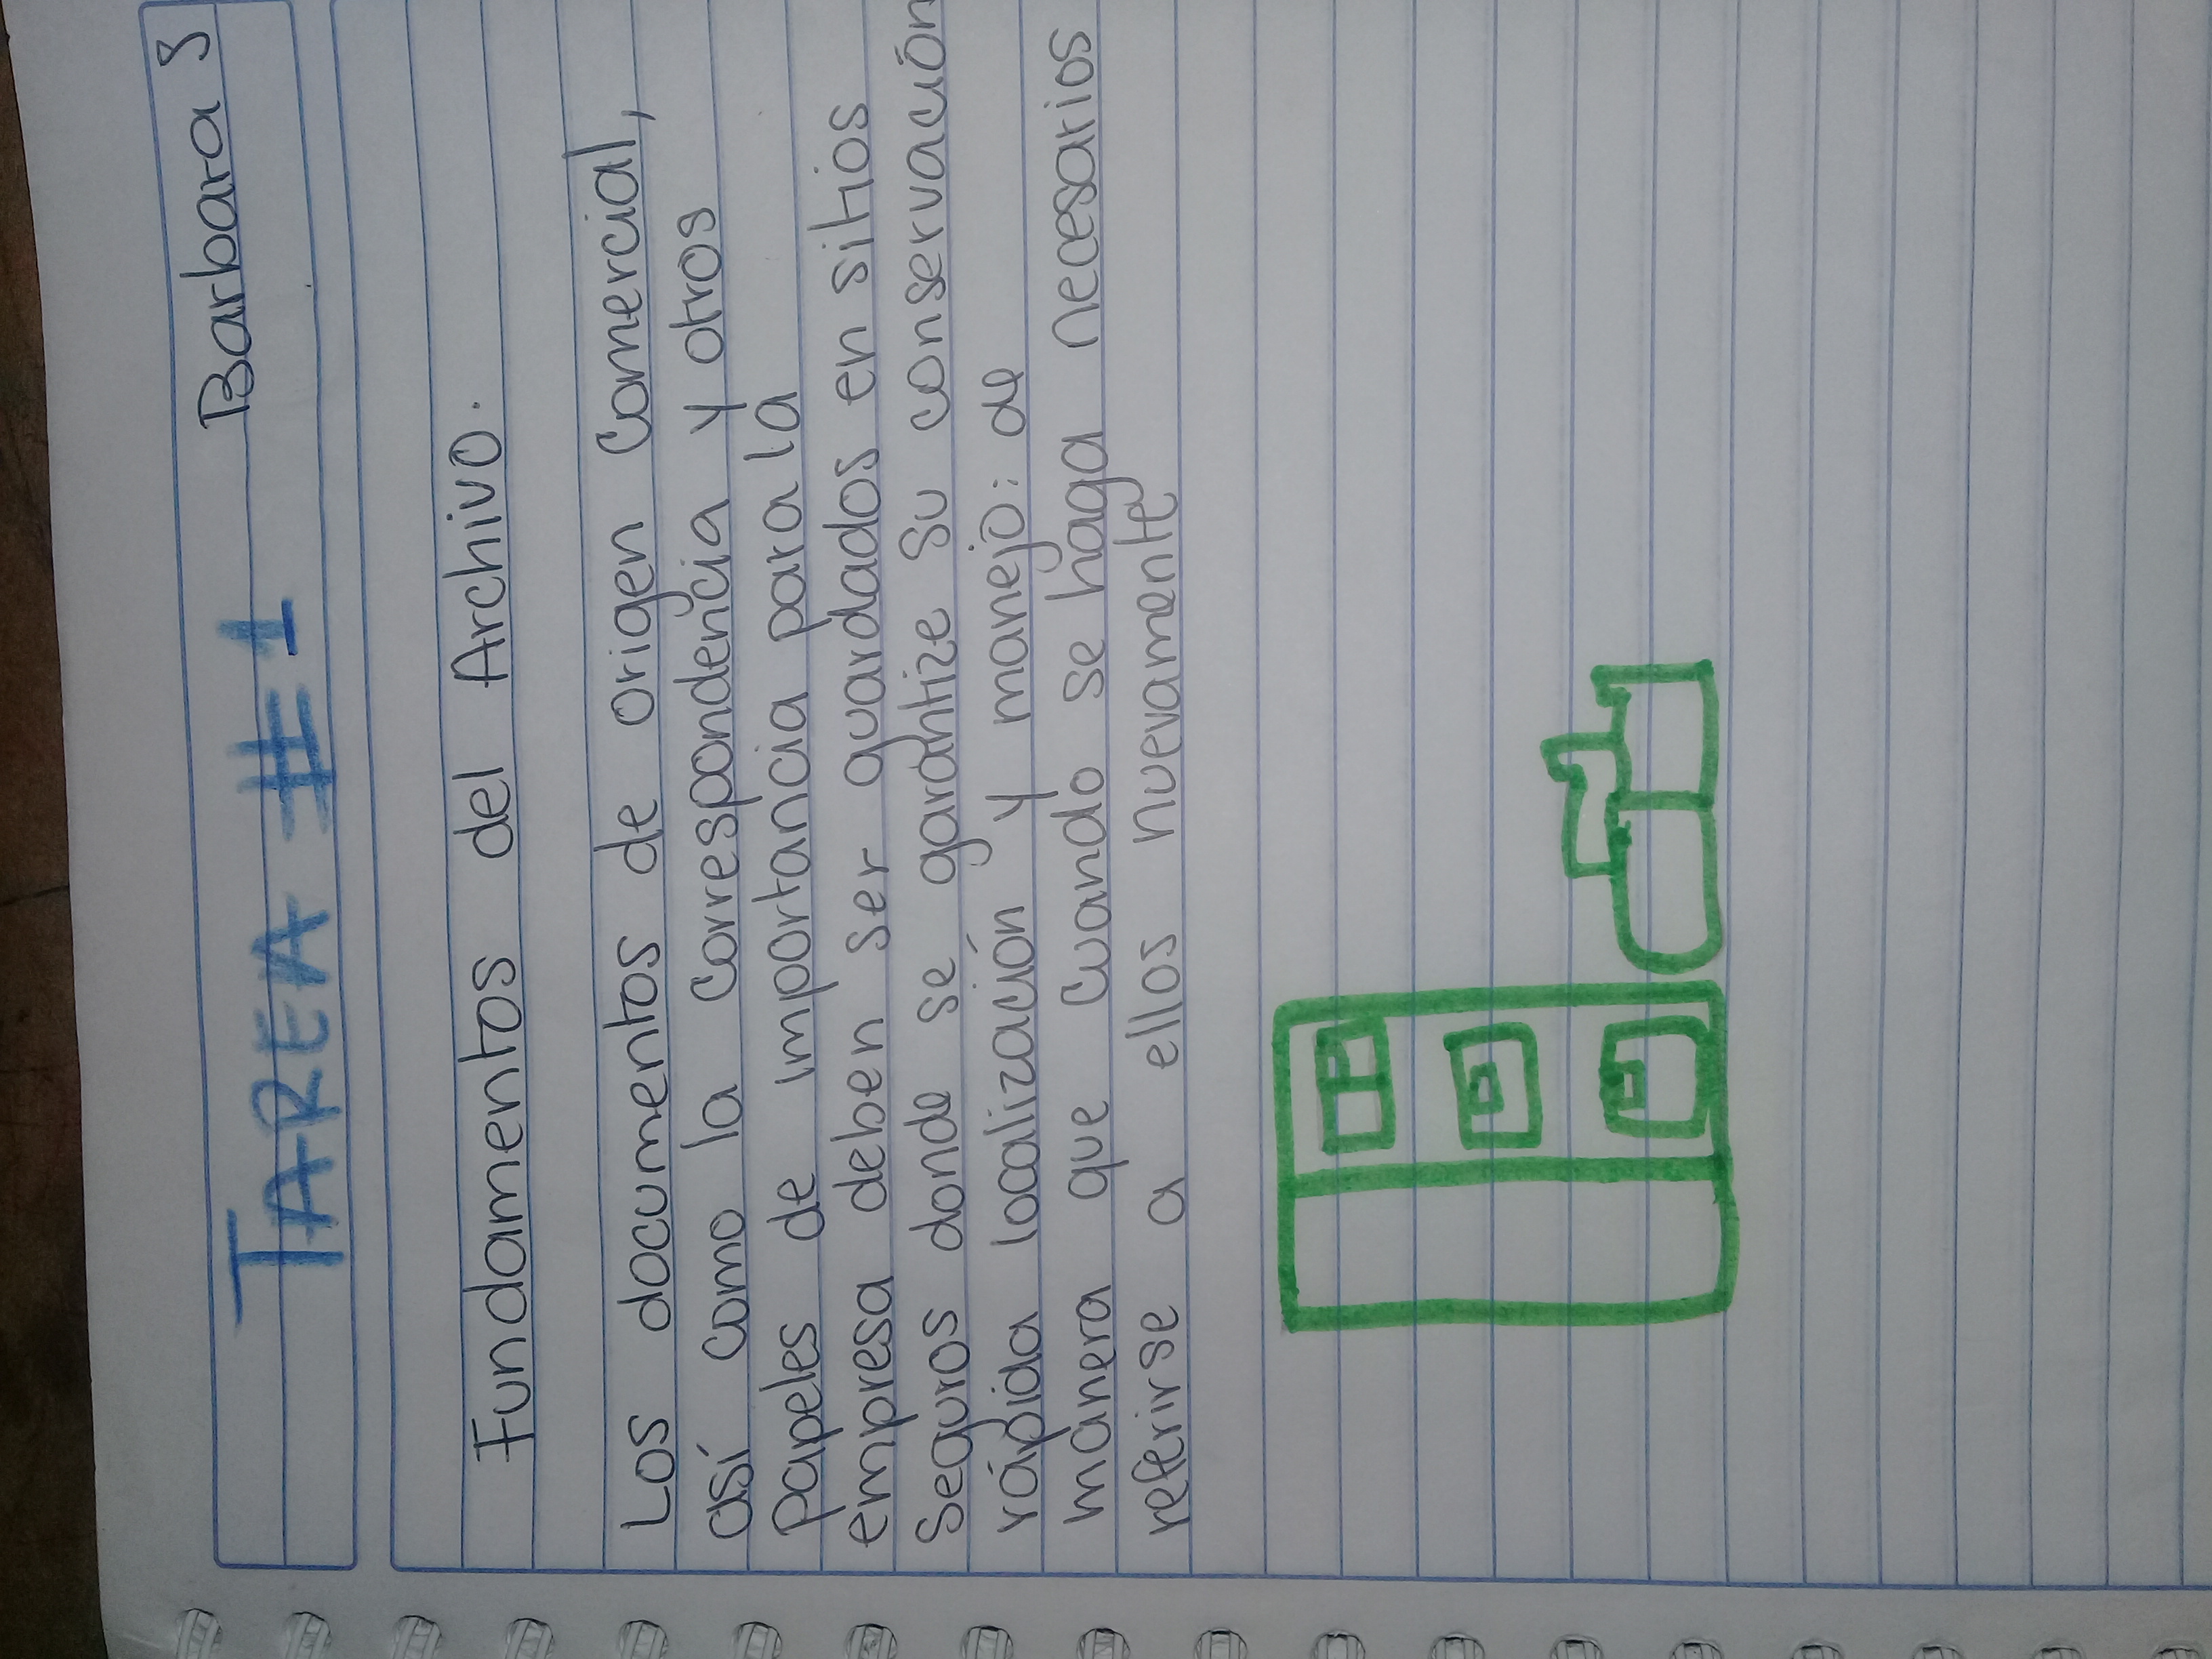 TAREA #1 Barbara S
Fundamentos del Archivo.
Los documentos de origen comercial,
así como la correspondencia y otros
papeles de importancia para la
empresa deben ser guardados en sitios
seguros donde se garantize su conservación
rápida localización y manejo: de
manera que cuando se haga necesarios
referirse a ellos nuevamente